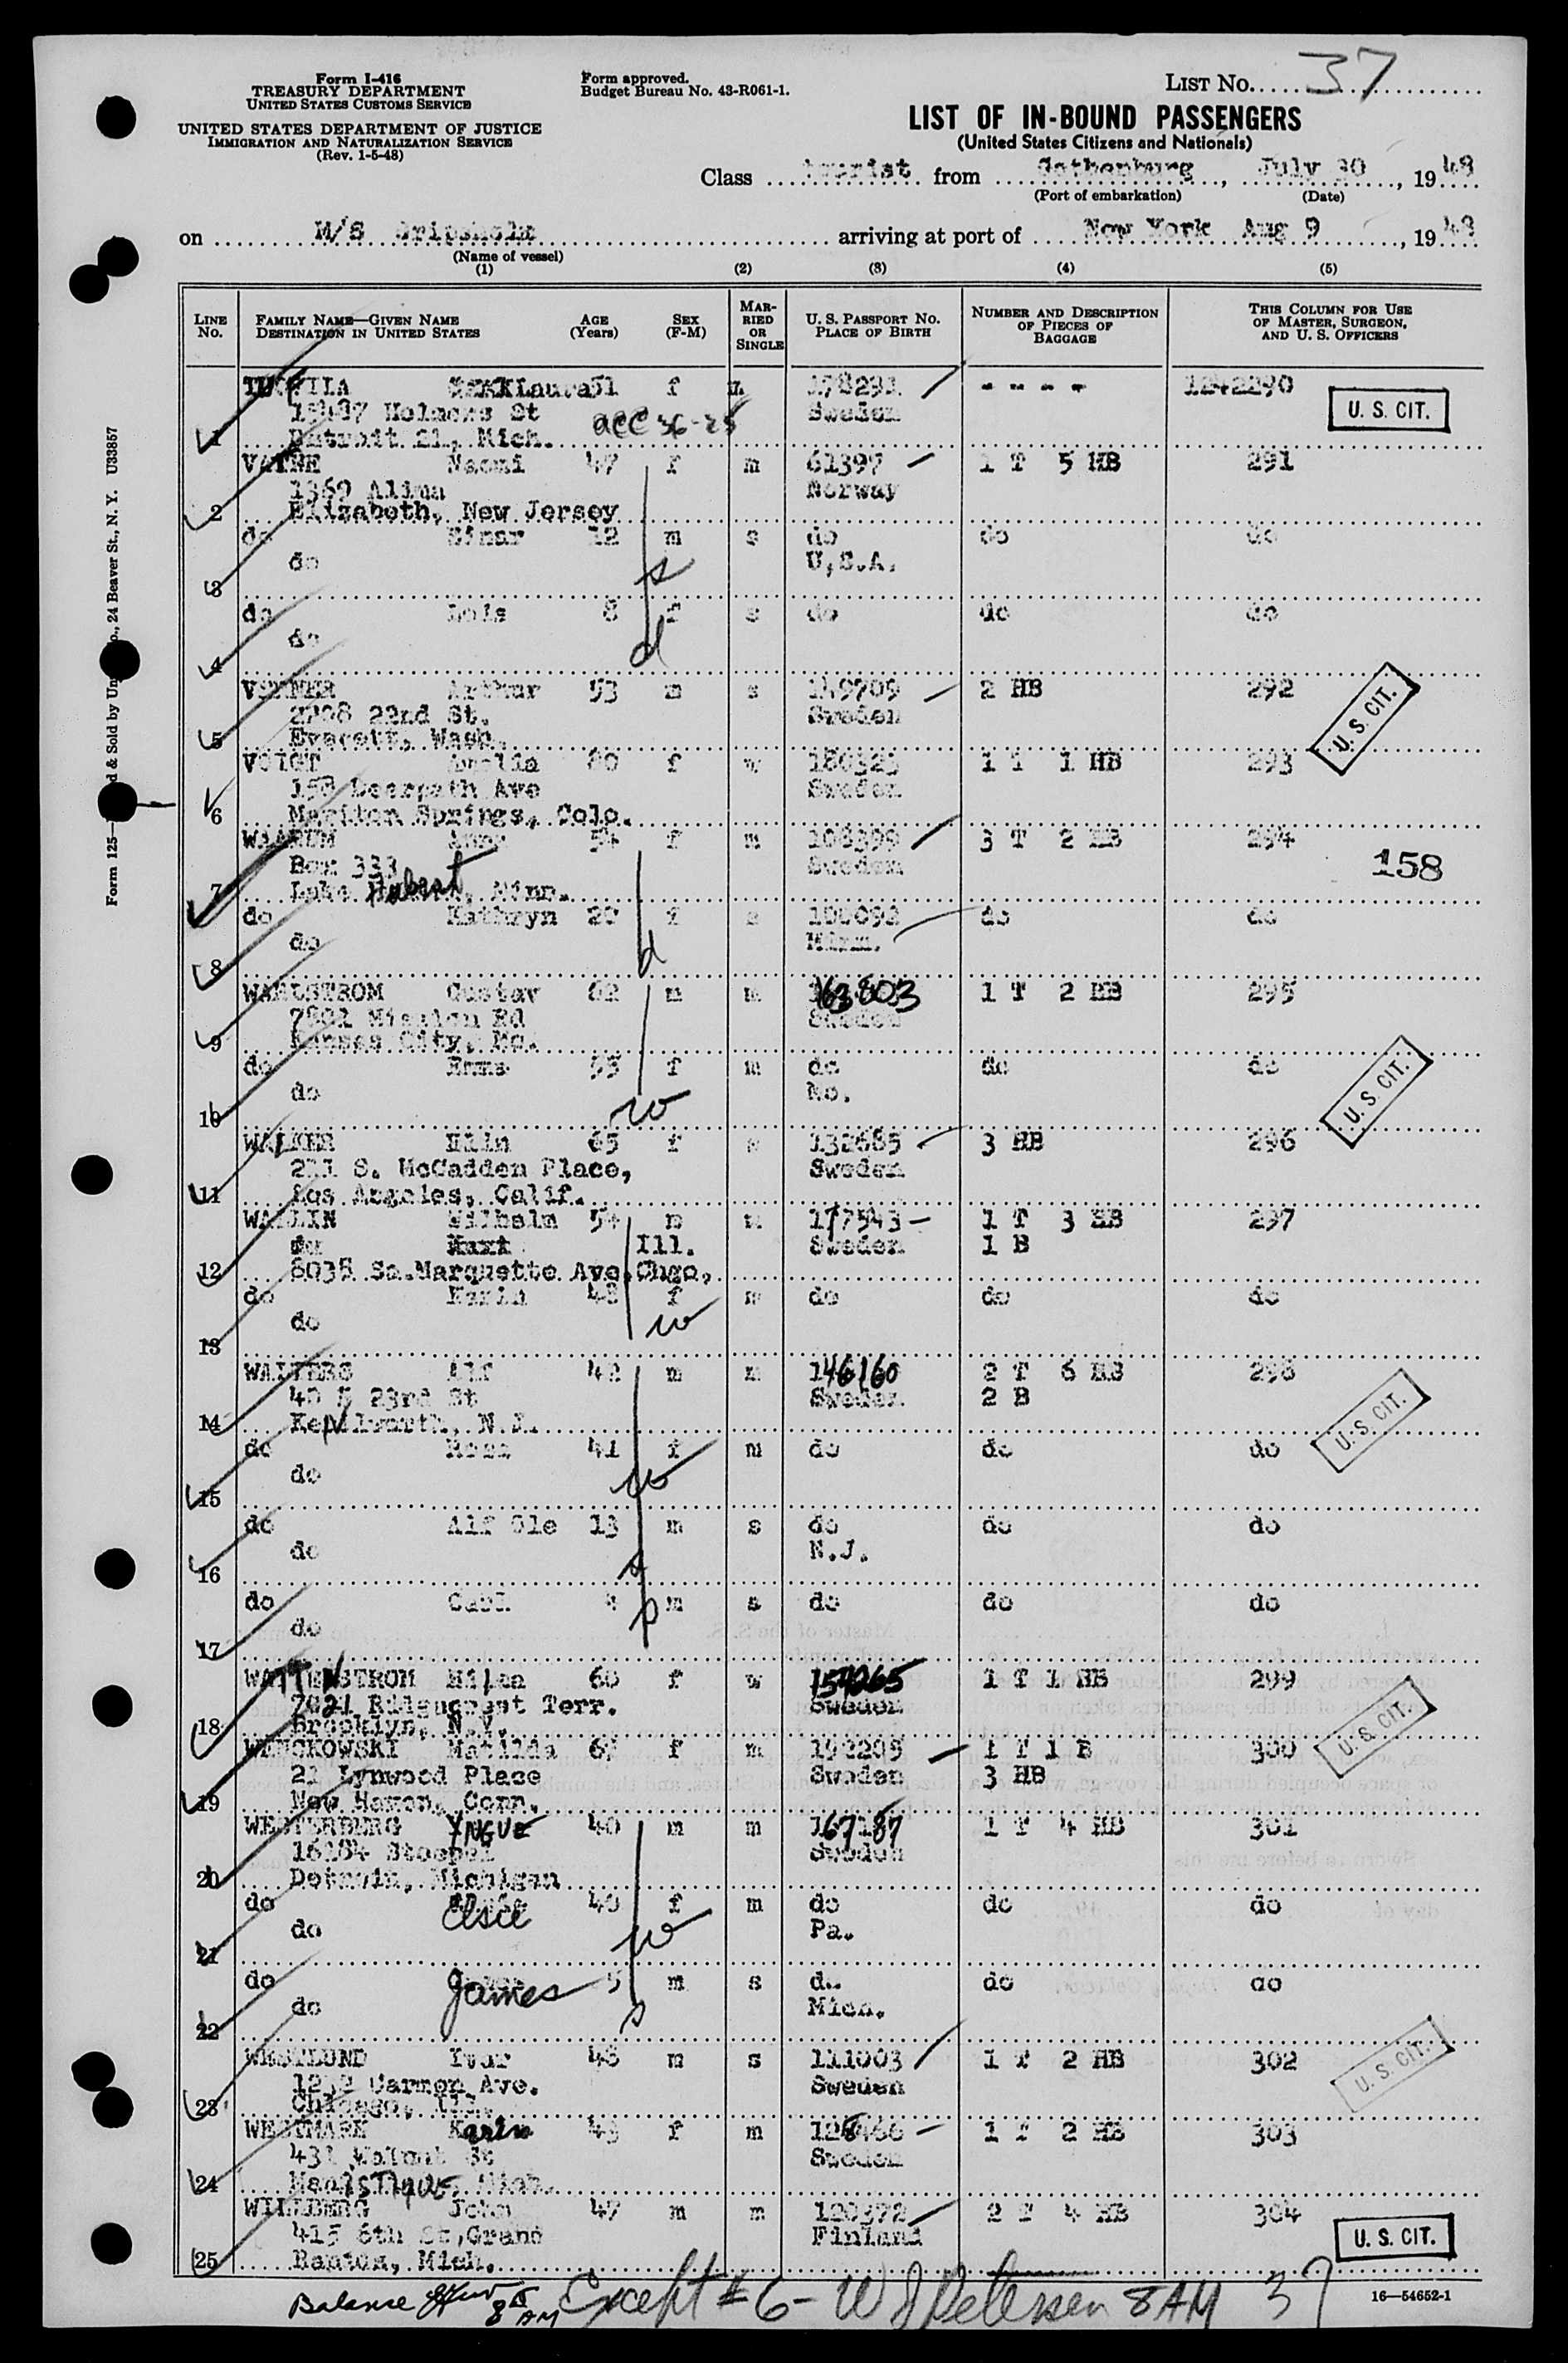 Form I-416
TREASURY DEPARTMENT
UNITED STATES CUSTOMS SERVICE
UNITED STATES DEPARTMENT OF JUSTICE
IMMIGRATION AND NATURALIZATION SERVICE
(Rev. 1-5-48)
Form approved.
Budget Bureau No. 43-R061-1.
LIST No. 37
LIST OF IN-BOUND PASSENGERS
(United States Citizens and Nationals)
Class tourist from Gothenburg, July 30, 1948
(Port of embarkation) (Date)
on M/S Gripsholm arriving at port of New York Aug 9, 1948
(Name of vessel)
(1) (2) (3) (4) (5)
LINE No. FAMILY NAME—GIVEN NAME DESTINATION IN UNITED STATES AGE (Years) SEX (F-M) MARRIED OR SINGLE U. S. PASSPORT NO. PLACE OF BIRTH NUMBER AND DESCRIPTION OF PIECES OF BAGGAGE THIS COLUMN FOR USE OF MASTER, SURGEON, AND U. S. OFFICERS
Laura 51 f 178291 - - - - 1242290 U. S. CIT.
Holmers St Sweden
1 Detroit 21, Mich. acc 36-25
Naomi 47 f m 61397 1 T 5 HB 291
1369 Alina Norway
2 Elizabeth, New Jersey
do Einar 12 m s do do do
do U.S.A.
3 s
do Lois 8 f s do do do
do
4 d
VENNER Arthur 53 m s 149709 2 HB 292 U. S. CIT.
2208 22nd St. Sweden
5 Everett, Wash.
VOIGT Amalia 80 f w 180325 1 T 1 HB 293
158 Deerpath Ave Sweden
6 Maniton Springs, Colo.
Anna 54 f m 108399 3 T 2 HB 294
Box 333 Sweden 158
7 Lake Hubert, Minn.
do Kathryn 20 f s do do
do Minn.
8 d
WAHLSTROM Gustav 62 m m 163803 1 T 2 HB 295
Mission Rd Sweden
9 Kansas City, Mo.
do Emma 55 f m do do do U. S. CIT.
do Mo.
10 w
WALKER Elin 65 f s 132685 3 HB 296
211 S. McCadden Place, Sweden
11 Los Angeles, Calif.
WALLIN Wilhelm 54 m m 177543 1 T 3 HB 297
do Ill. Sweden 1 B
12 8035 So.Marquette Ave.Chgo,
do Karin 48 f m do do do
do w
13
WALTERS Alf 42 m m 146160 2 T 6 HB 298
40 S 23rd St Sweden 2 B
14 Kenilworth, N.J. U. S. CIT.
do Rosa 41 f m do do do
do w
15
do Alf Ole 13 m s do do do
do N.J.
16 s
do m s do do do
do s
17
WATTENSTROM Hilma 60 f w 154265 1 T 1 HB 299
7021 Ridgecrest Terr. Sweden U. S. CIT.
18 Brooklyn, N.Y.
WENCKOWSKI Matilda f m 192205 1 T 1 B 300
21 Lynwood Place Sweden 3 HB
19 New Haven, Conn.
WESTERBERG YNGVE 40 m m 167187 1 T 4 HB 301
16184 Stoepel Sweden
20 Detroit, Michigan
do Elsie 40 f m do do do
do w Pa.
21
do James 5 m s do do do
do s Mich.
22
WESTLUND Ivar 48 m s 111003 1 T 2 HB 302
Carmen Ave. Sweden U. S. CIT.
23 Chicago, Ill.
WESTMARK Karin 43 f m 1 T 2 HB 303
431 Walnut St Sweden
24 Manistique, Mich.
WILLBERG John 47 m m 120372 2 T 4 HB 304
415 8th St,Grand Finland U. S. CIT.
25 Rapids, Mich.
Balance 8 AM Except # 6 - W J Petersen 8 AM 37
16—54652-1
Form 125— d & Sold by Un o., 24 Beaver St., N. Y. U33857